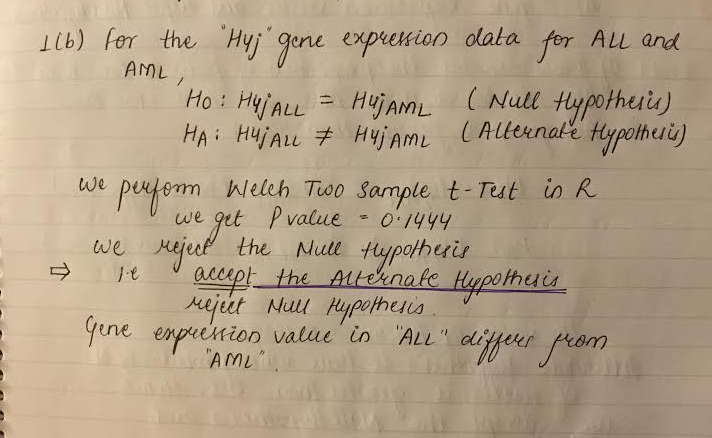 1(b) For the "H4j" gene expression data for ALL and
AML,
H0 : H4jALL = H4jAML ( Null Hypothesis)
HA : H4jALL ≠ H4jAML ( Alternate Hypothesis)
We perform Welch Two Sample t-Test in R
we get P value = 0.1444
we reject the Null Hypothesis
⇒ i.e accept the Alternate Hypothesis
reject Null Hypothesis.
Gene expression value in "ALL" differs from
"AML".